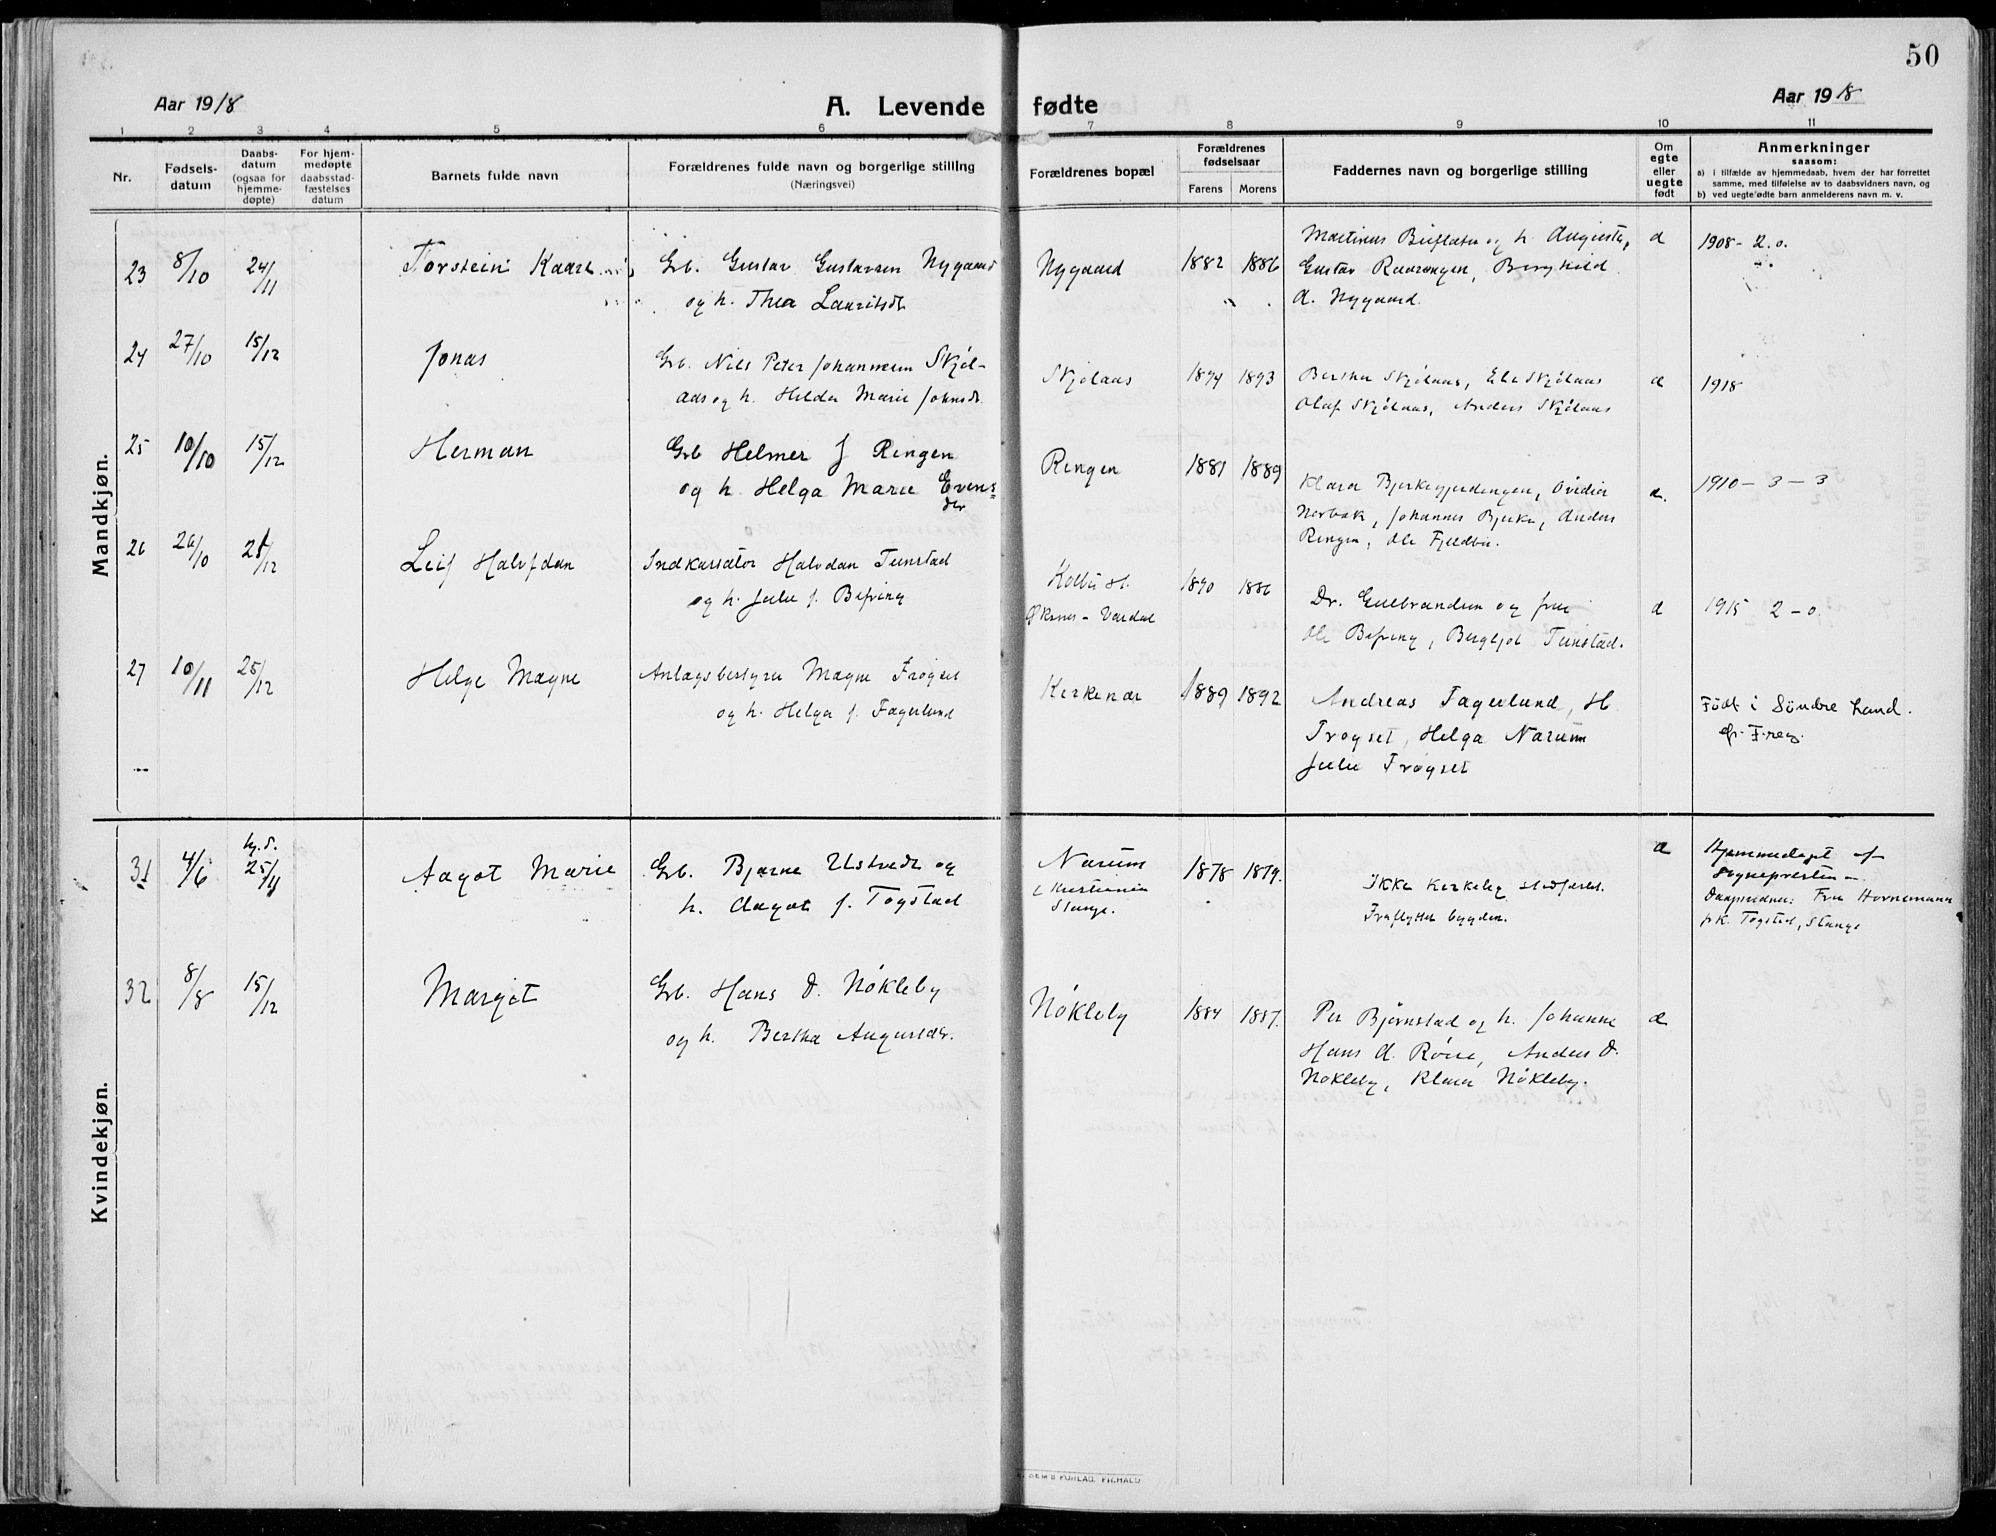 50
Aar 1918
A. Levende fødte
Aar 1918
1 2 3 4 5 6 7 8 9 10 11
Nr.
Fødsels-
datum
Daabs-
datum
(ogsaa for
hjemme-
døpte)
For hjem-
medøpte
daabsstad-
fæstelses
datum
Barnets fulde navn
Forældrenes fulde navn og borgerlige stilling
(Næringsvei)
Forældrenes bopæl
Forældrenes
fødselsaar
Farens Morens
Faddernes navn og borgerlige stilling
Om
egte
eller
uegte
født
Anmerkninger
saasom:
a) i tilfælde av hjemmedaab, hvem der har forrettet
samme, med tilføielse av to daabsvidners navn, og
b) ved uegte fødte barn anmelderens navn m. v.
Mandkjøn.
23 8/10 24/11 Torstein Kaare
Grb. Gustav Gustavsen Nygaard
og h. Thea Lauritsdr.
Nygaard 1882 1886
Martinus og h. Augusta,
Gustav Berghild
A. Nygaard.
a 1908 - 2.0.
24 27/10 15/12 Jonas
Grb. Nils Peter Johannesen Skjøl-
aas og h. Hilda Marie Johnsdr.
Skjølaas 1894 1893
Bertha Skjølaas, Ole Skjølaas
Olaf Skjølaas, Anders Skjølaas
a 1918
25 10/10 15/12 Herman
Grb Helmer J Ringen
og h. Helga Marie Evens-
dr
Ringen 1881 1889
Klara Bjerkegjerdengen, Ovidia
Nerbak, Johannes Bjerke, Anders
Ringen, Ole Fjeldbu.
a. 1910 - 3 - 3
26 26/10 25/12 Leif Halvdan
Indkassator Halvdan Tunstad
og h. Julie f. Bifring
Kolbu st.
Øknes - Vardal
1890 1886
Dr. Gulbrandsen og frue
Ole Bifring, Bergljot Tunstad.
a 1915 2 - 0.
27 10/11 25/12 Helge Magne
Anlægsbestyrer Magne Frøyset
og h. Helga f. Fagerlund
Kirkenær 1889 1892
Andreas Fagerlund, H.
Frøyset, Helga Narum
Julie Frøyset
Født i Søndre Land.
Kvindekjøn.
31 4/6 hj. d. 25/11 Aagot Marie
Grb. Bjarne Ustvedt og
h. Aagot f. Togstad
Narum
Kristiania
Stange.
1878 1879.
Ikke kirkelig stadfæstet.
Fraflyttet bygden.
a
Hjemmedøpt af
Sognepresten -
Daapsvidner: Fru Hornemann
frk. Togstad, Stange
32 8/8 15/12 Margit
Grb. Hans O. Nökleby
og h. Bertha Augustdr.
Nökleby 1884 1887.
Per Bjørnstad og h. Johanne
Hans A. Røise, Anders O.
Nökleby, Klara Nökleby.
a